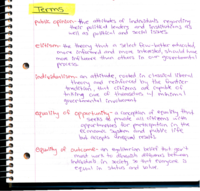 Terms
public opinion- the attitudes of individuals regarding
their political leaders and institutions as
well as political and social issues
elitism- the theory that a select few- better educated,
more informed and more interested, should have
more influence than others in our governmental
process
Individualism- an attitude, rooted in classical liberal
theory and reinforced by the frontier
tradition, that citizens are capable of
taking care of themselves w/ minimal
governmental involvement
equality of opportunity- a conception of equality that
seeks to provide all citizens with
opportunities for participation in the
economic system and public life
but accepts unequal results
Equality of outcome- an egalitarian belief that gov't
must work to diminish differences between
individuals in society so that everyone is
equal in status and value